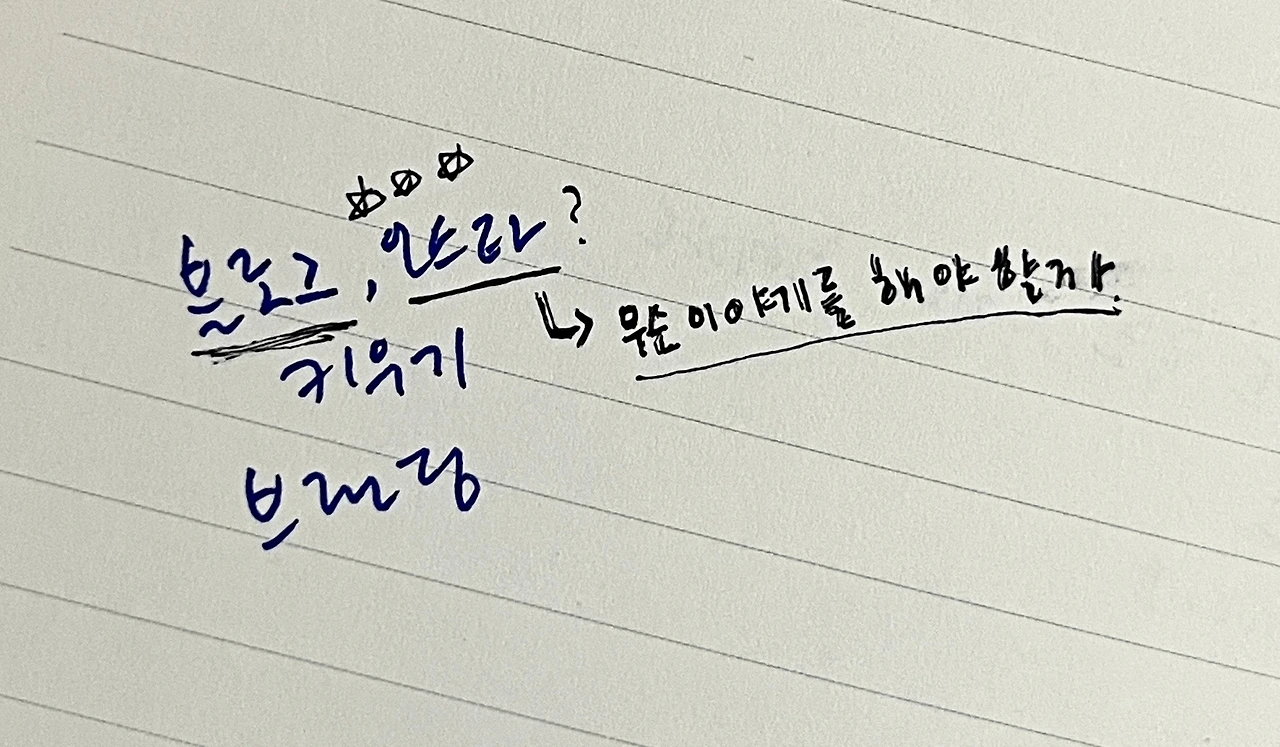 ☆☆☆
브로그, 인스타?
↳ 무슨 이야기를 해야 할지
키우기
브랜딩